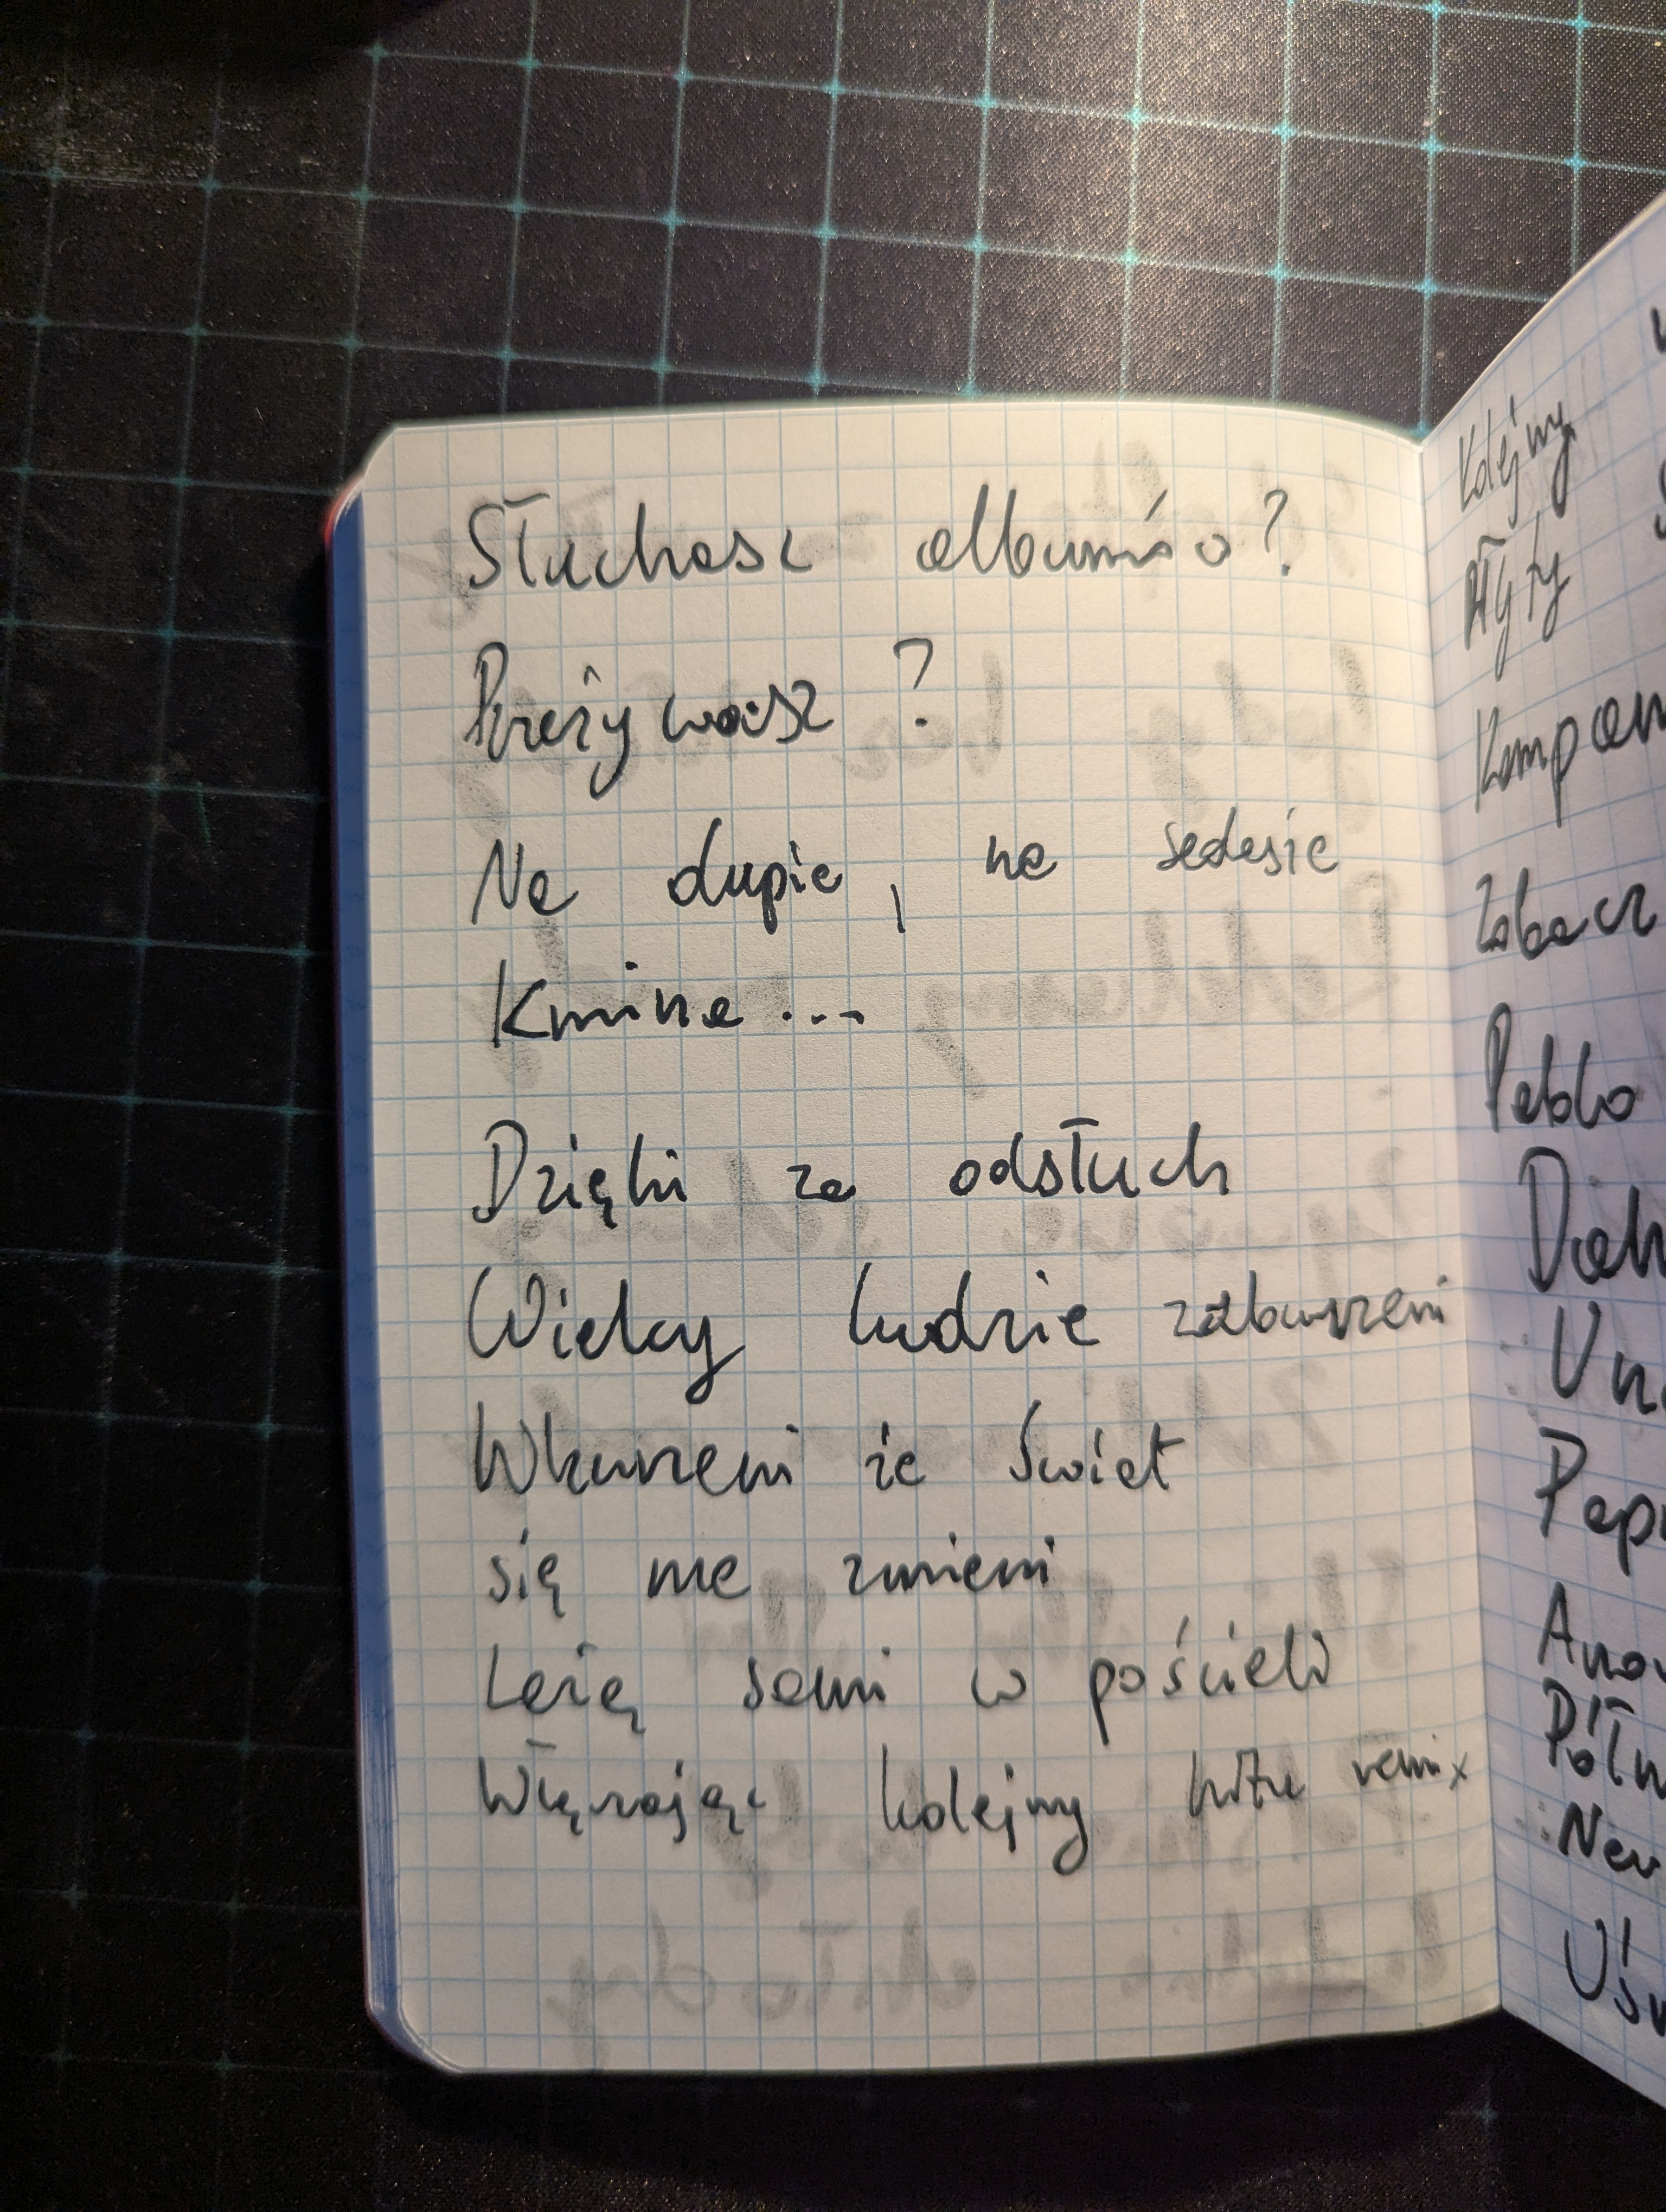 Słuchasz albumów?
Przeżywasz?
Na dupie, na sedesie
Kmina...
Dzięki za odsłuch
Wielcy ludzie zabużeni
Wkurzeni że świat
się nie zmieni
Leżą sami w pościeli
Włączając kolejny hitu remix
Kolejny
Płyty
Kompan
Zobacz
Pablo
Dah
Una
Papr
Ano
Półn
New
Uśw